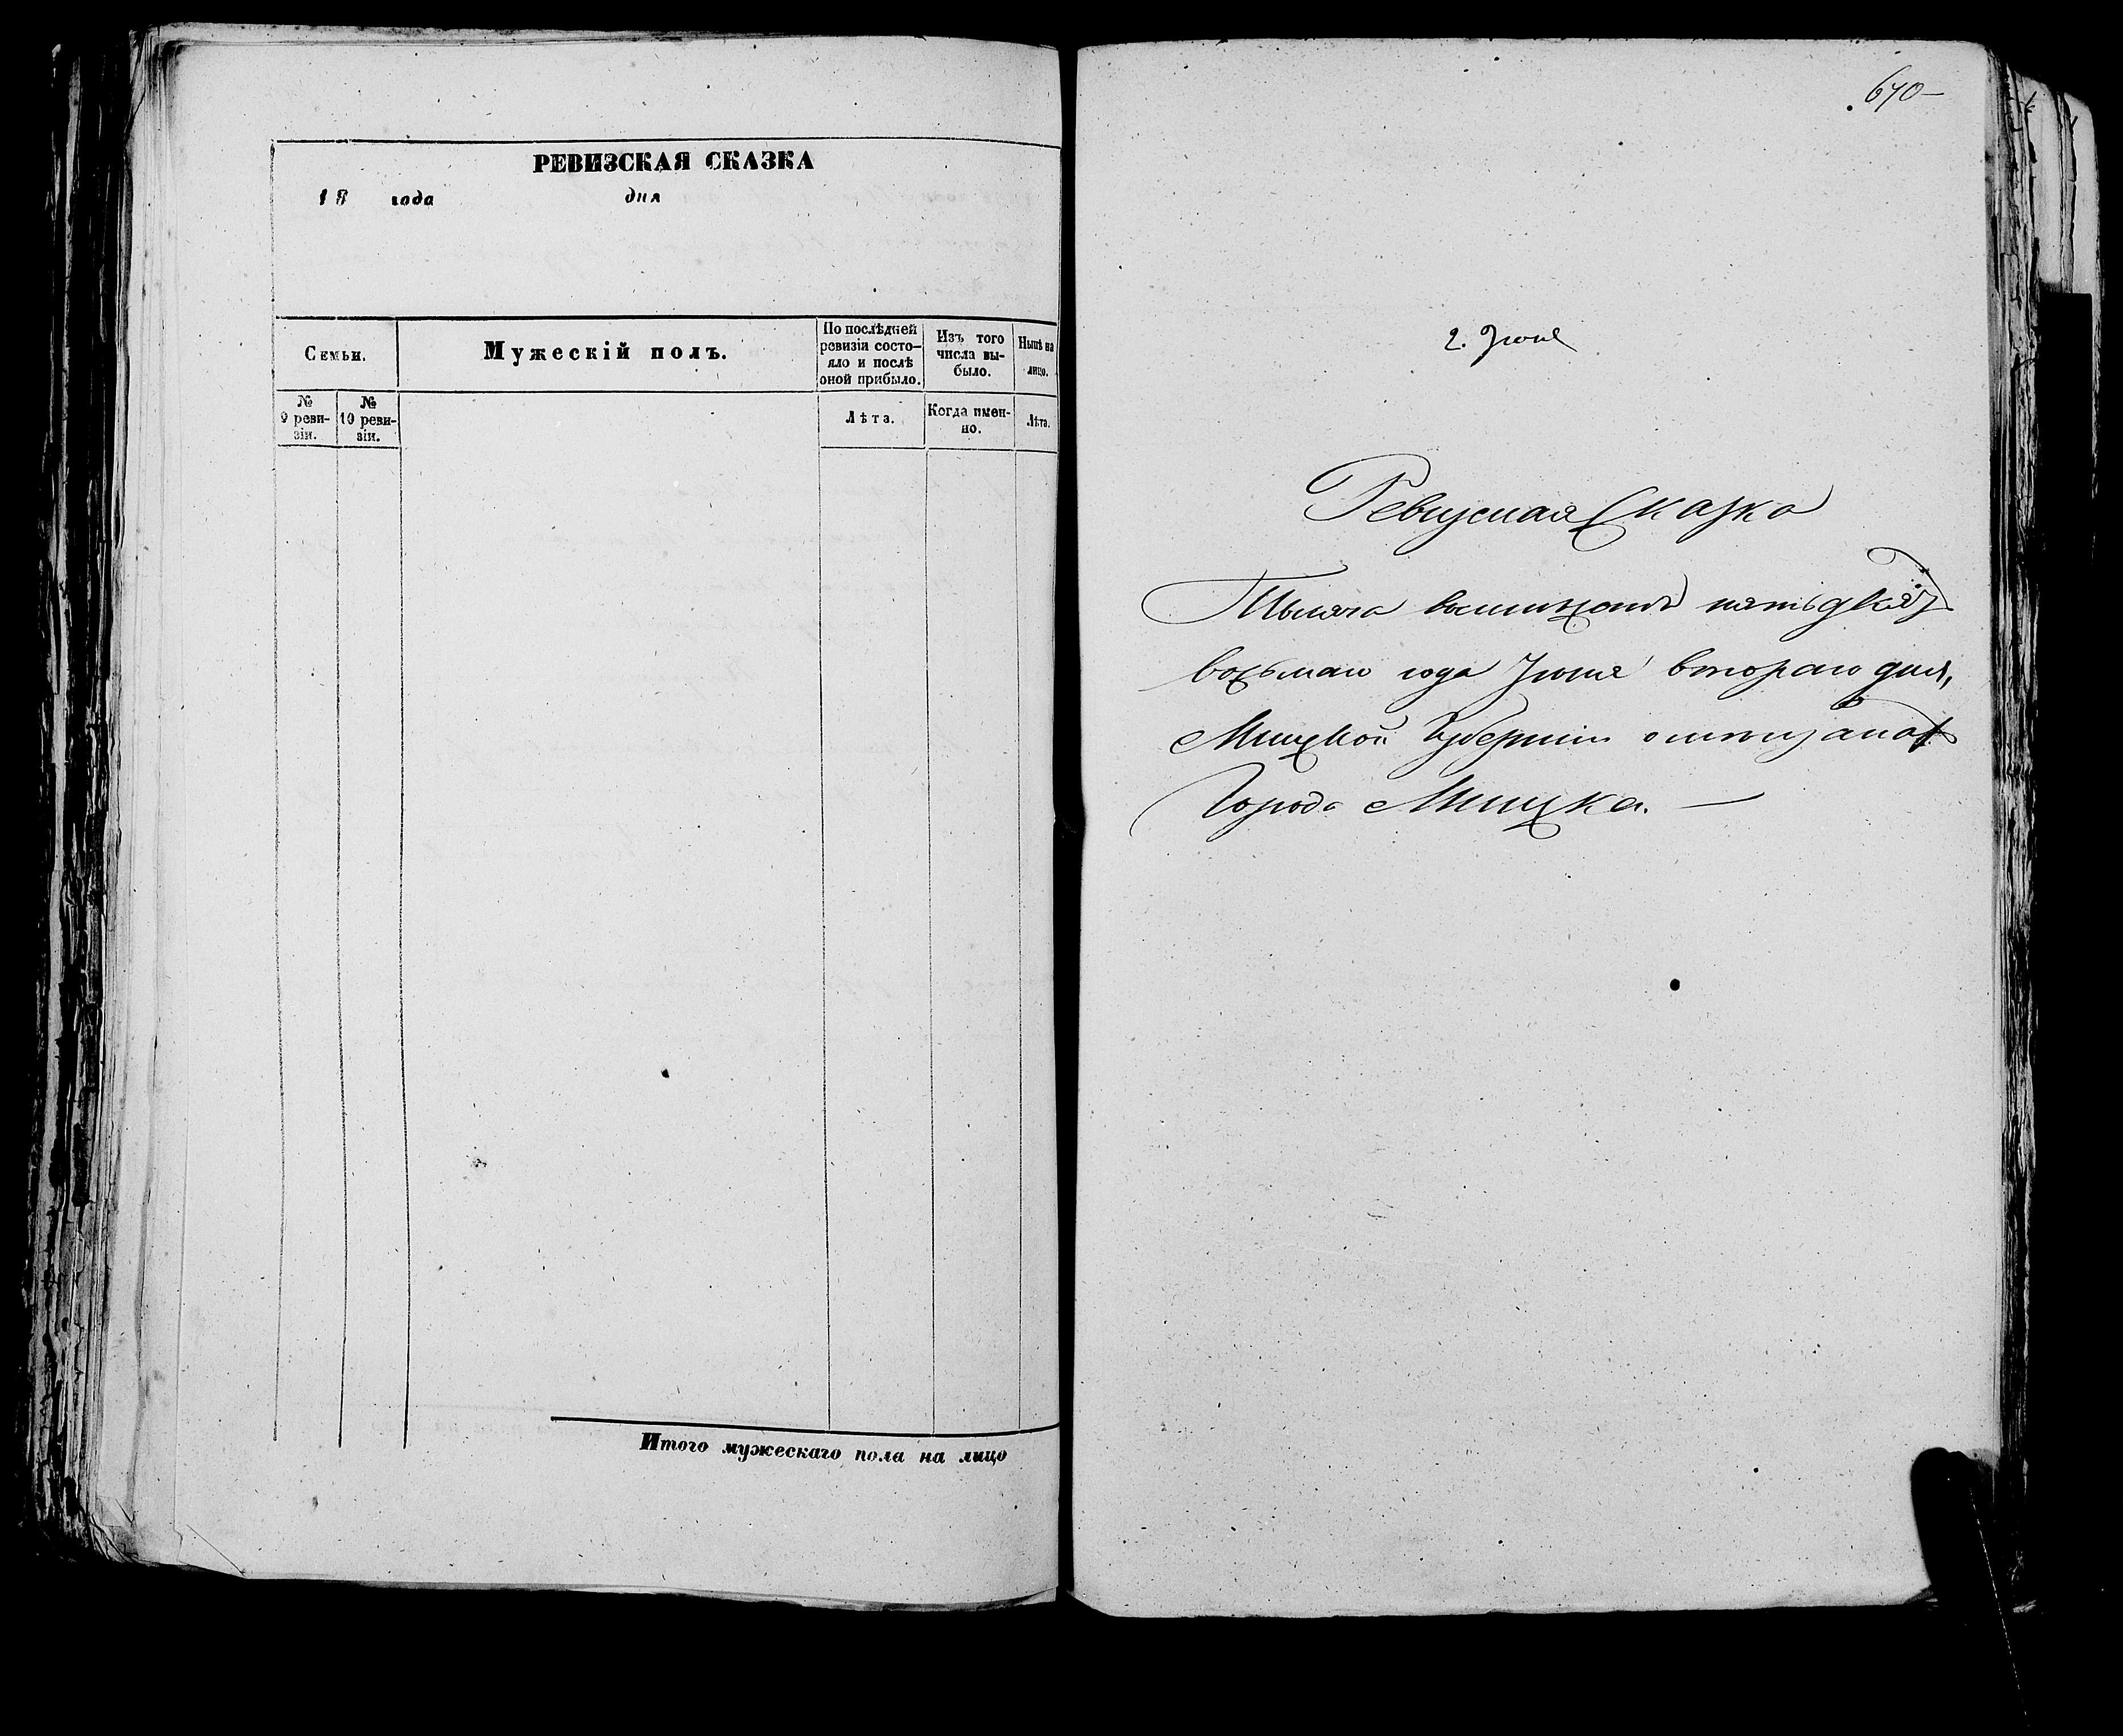 РЕВИЗСКАЯ СКАЗКА
18 года дня
Семьи.
Мужескій полъ.
По послѣдней ревизіи состо-
яло и послѣ оной прибыло.
Изъ того числа вы-
было.
Нынѣ на лицо.
№ 9 реви-
зіи.
№ 10 реви-
зіи.
Лѣта.
Когда имен-
но.
Лѣта.
Итого мужескаго пола на лицо
670
2. Іюня
Ревизская Сказка
Тысяча восьмисотъ пятьдесятъ
восьмаго года Іюня втораго дня,
Минской Губерніи
Города Минска. —